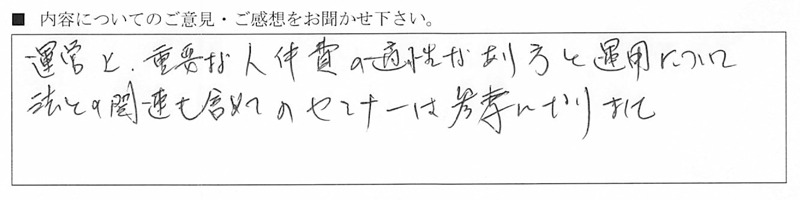 ■ 内容についてのご意見・ご感想をお聞かせ下さい。
運営と、重要な人件費の適性なあり方と運用について
法との関連も含めてのセミナーは参考になりまして